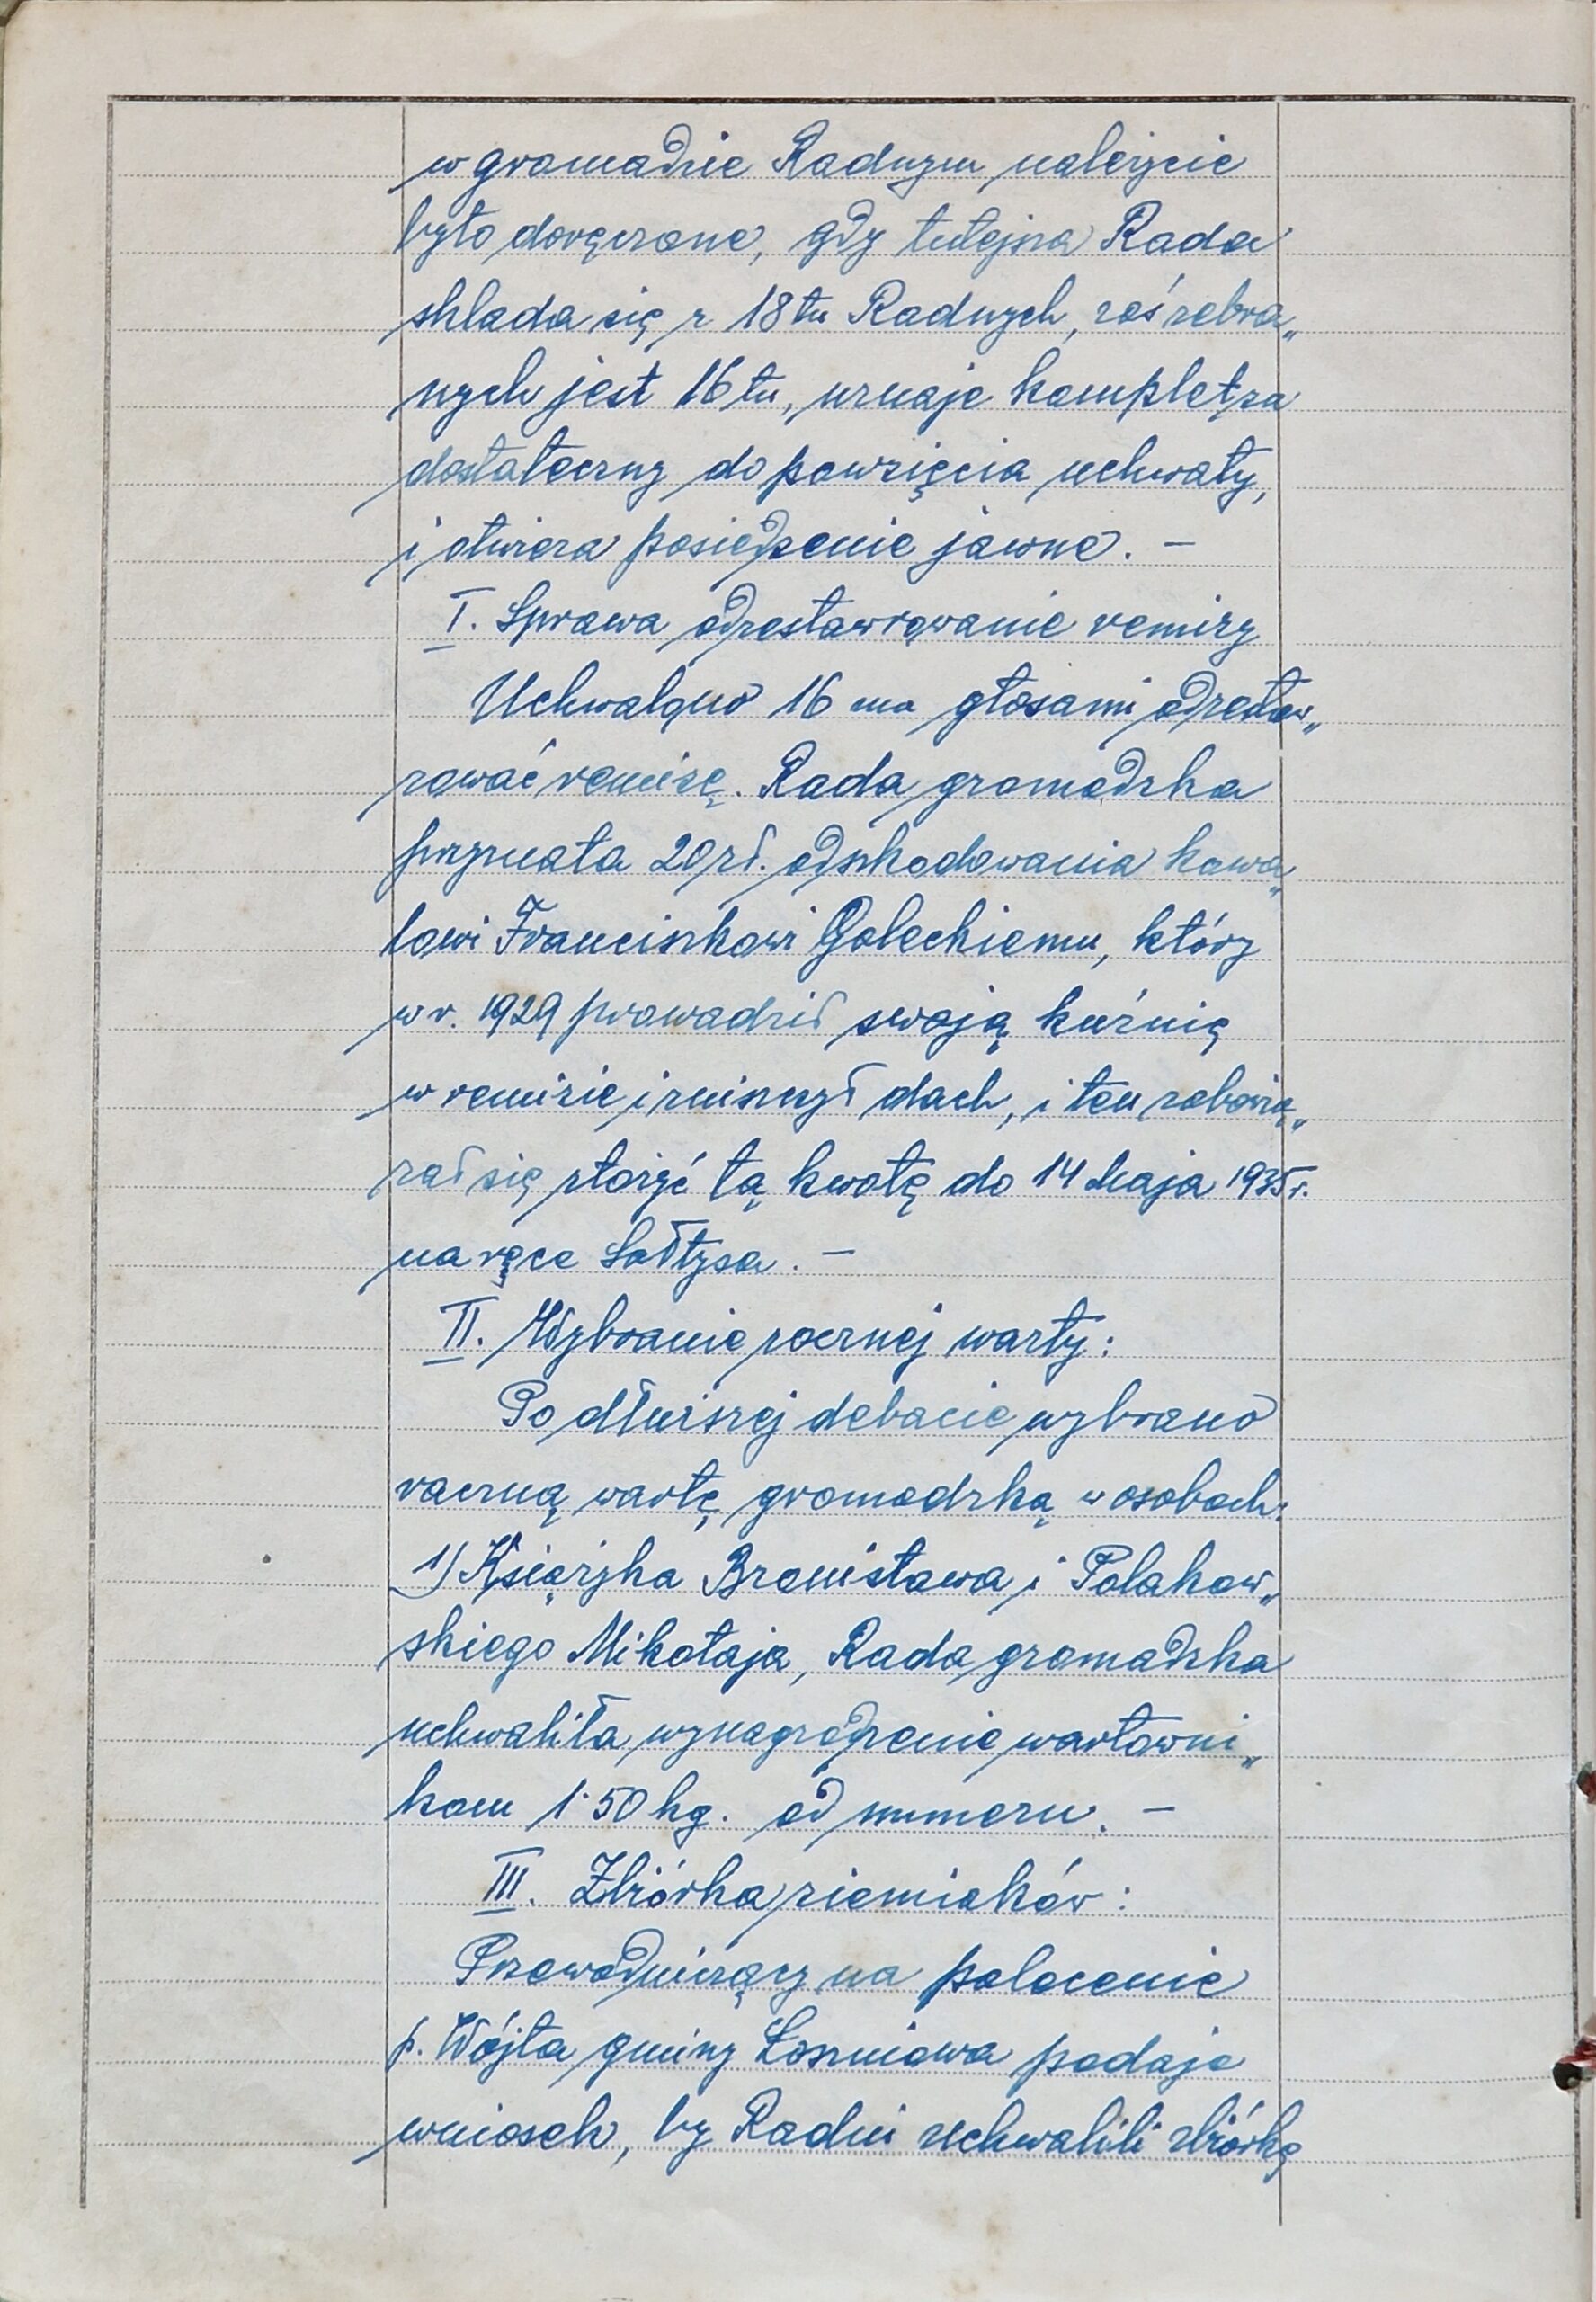 w gromadzie Radnym należycie
było doręczone, gdy tutejsza Rada
składa się z 18tu Radnych, zaś zebra„
nych jest 16tu, uznaje komplet za
dostateczny do powzięcia uchwały,
i otwiera posiedzenie jawne. –
I. Sprawa odrestawrowanie remizy
Uchwalono 16 ma głosami odrestaw„
rować remizę. Rada gromadzka
przyznała 20 zł. odszkodowania kowa„
lowi Franciszkowi Goleckiemu, który
w r. 1929 prowadził swoją kuźnię
w remizie i zniszczył dach, i ten zobowią„
zał się złożyć tą kwotę do 14 Maja 1935 r.
na ręce Sołtysa. –
II. Wybranie rocznej warty:
Po dłuższej debacie wybrano
roczną wartę gromadzką w osobach:
1) Książka Bronisława i Polakow„
skiego Mikołaja, Rada gromadzka
uchwaliła wynagrodzenie wartowni„
kom 1·50 kg. od numeru. –
III. Zbiórka ziemiaków:
Przewodniczący na polecenie
p. Wójta gminy Łoszniowa podaje
wniosek, by Radni uchwalili zbiórkę